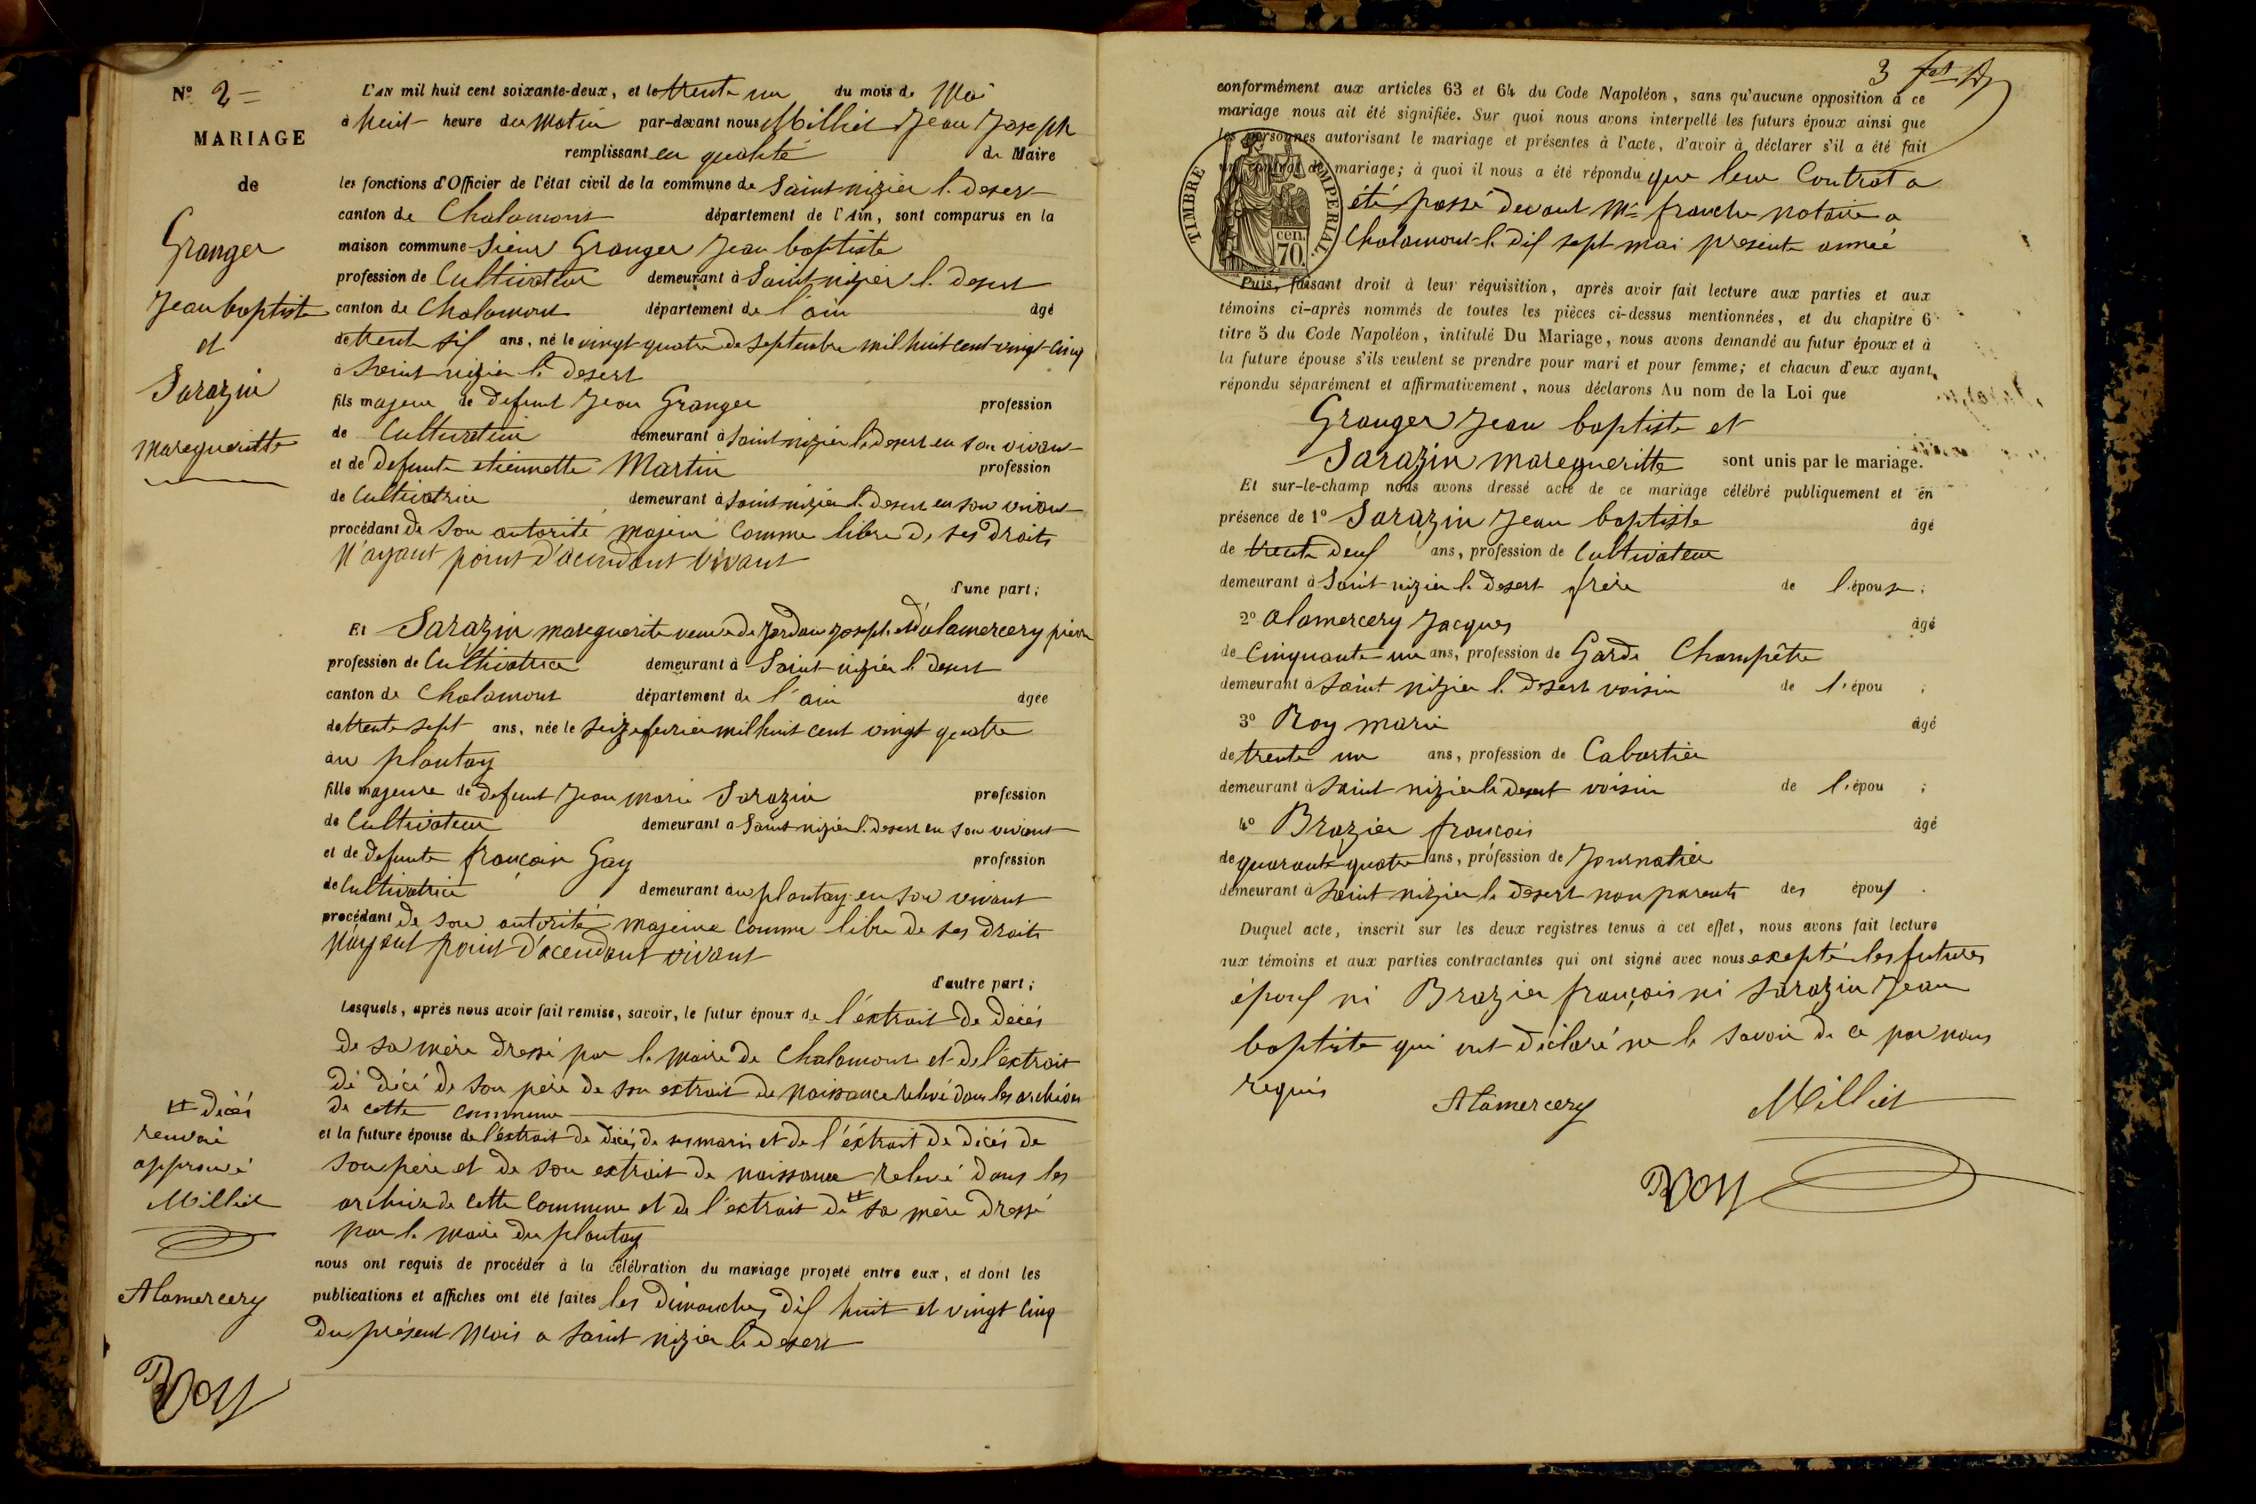 N° 2=
MARIAGE
de
Granger
Jean baptiste
et
Sarazin
Maregueritte
L'AN mil huit cent soixante-deux, et le trente un du mois de Mai
à huit heure du Matin par-devant nous Milliet Jean Joseph
remplissant en qualité de Maire
les fonctions d'Officier de l'état civil de la commune de Saint nizier le desert
canton de Chalamont département de l'Ain, sont comparus en la
maison commune Sieur Granger Jean baptiste
profession de Cultivateur demeurant à Saint nizier le desert
canton de Chalamont département de l'ain âgé
de trente six ans, né le vingt quatre de septembre mil huit cent vingt cinq
à Saint nizier le desert
fils majeur de defunt Jean Granger profession
de Cultivateur demeurant à Saint nizier le desert en son vivant
et de defunte etiennette Martin profession
de Cultivatrice demeurant à Saint nizier le desert en son vivant
procédant de son autorité majeur comme libre de ses droits
N'ayant point d'acendant vivant
d'une part;
Et Sarazin mareguerite veuve de Jordan Joseph et d'alamercery pierre
profession de Cultivatrice demeurant à Saint nizier le desert
canton de Chalamont département de l'ain âgée
de trente sept ans, née le seize fevrier mil huit cent vingt quatre
au plantay
fille majeure de defunt Jean marie Sarazin profession
de Cultivateur demeurant a Saint nizier le desert en son vivant
et de defunte françoise Gay profession
de Cultivatrice demeurant au plantay en son vivant
procédant de son autorité majeure comme libre de ses droits
N'ayant point d'acendant vivant
d'autre part;
Lesquels, après nous avoir fait remise, savoir, le futur époux de l'extrait de décés
de sa mère dressé par le maire de Chalamont et de l'extrait
de décé de son père de son extrait de naissance relevé dans les archives
de cette commune
et la future épouse de l'éxtrait de décés de ses maris et de l'éxtrait de décés de
son père et de son extrait de naissance relevé dans les
archive de cette commune et de l'extrait de # sa mère dressé
par le maire du plantay
nous ont requis de procéder à la célébration du mariage projeté entre eux, et dont les
publications et affiches ont été faites les dimanches dix huit et vingt cinq
du présent Mois a Saint nizier le desert
# décés
renvoi
approuvé
Milliet
Alamercery
Roy
3
conformément aux articles 63 et 64 du Code Napoléon, sans qu'aucune opposition à ce
mariage nous ait été signifiée. Sur quoi nous avons interpellé les futurs époux ainsi que
les personnes autorisant le mariage et présentes à l'acte, d'avoir à déclarer s'il a été fait
un contrat de mariage; à quoi il nous a été répondu que leur Contrat a
été passé devant Me franche notaire a
Chalamont le dix sept mai presente année
TIMBRE IMPERIAL
70 cen.
Puis, faisant droit à leur réquisition, après avoir fait lecture aux parties et aux
témoins ci-après nommés de toutes les pièces ci-dessus mentionnées, et du chapitre 6
titre 5 du Code Napoléon, intitulé Du Mariage, nous avons demandé au futur époux et à
la future épouse s'ils veulent se prendre pour mari et pour femme; et chacun d'eux ayant
répondu séparément et affirmativement, nous déclarons Au nom de la Loi que
Granger Jean baptiste et
Sarazin maregueritte sont unis par le mariage.
Et sur-le-champ nous avons dressé acte de ce mariage célébré publiquement et en
présence de 1° Sarazin Jean baptiste âgé
de trente deux ans, profession de Cultivateur
demeurant à Saint nizier le desert frère de l'épouse;
2° alamercery Jacques âgé
de Cinquante un ans, profession de Garde Champêtre
demeurant à Saint nizier le desert voisin de l'épou ;
3° Roy marie âgé
de trente un ans, profession de Cabartier
demeurant à Saint nizier le desert voisin de l'épou ;
4° Brazier françois âgé
de quarante quatre ans, profession de Journalier
demeurant à Saint nizier le desert non parents des époux.
Duquel acte, inscrit sur les deux registres tenus à cet effet, nous avons fait lecture
aux témoins et aux parties contractantes qui ont signé avec nous excepté les futures
époux ni Brazier françois ni Sarazin Jean
baptiste qui ont déclaré ne le savoir de ce par nous
requis
Alamercery Milliet
Roy